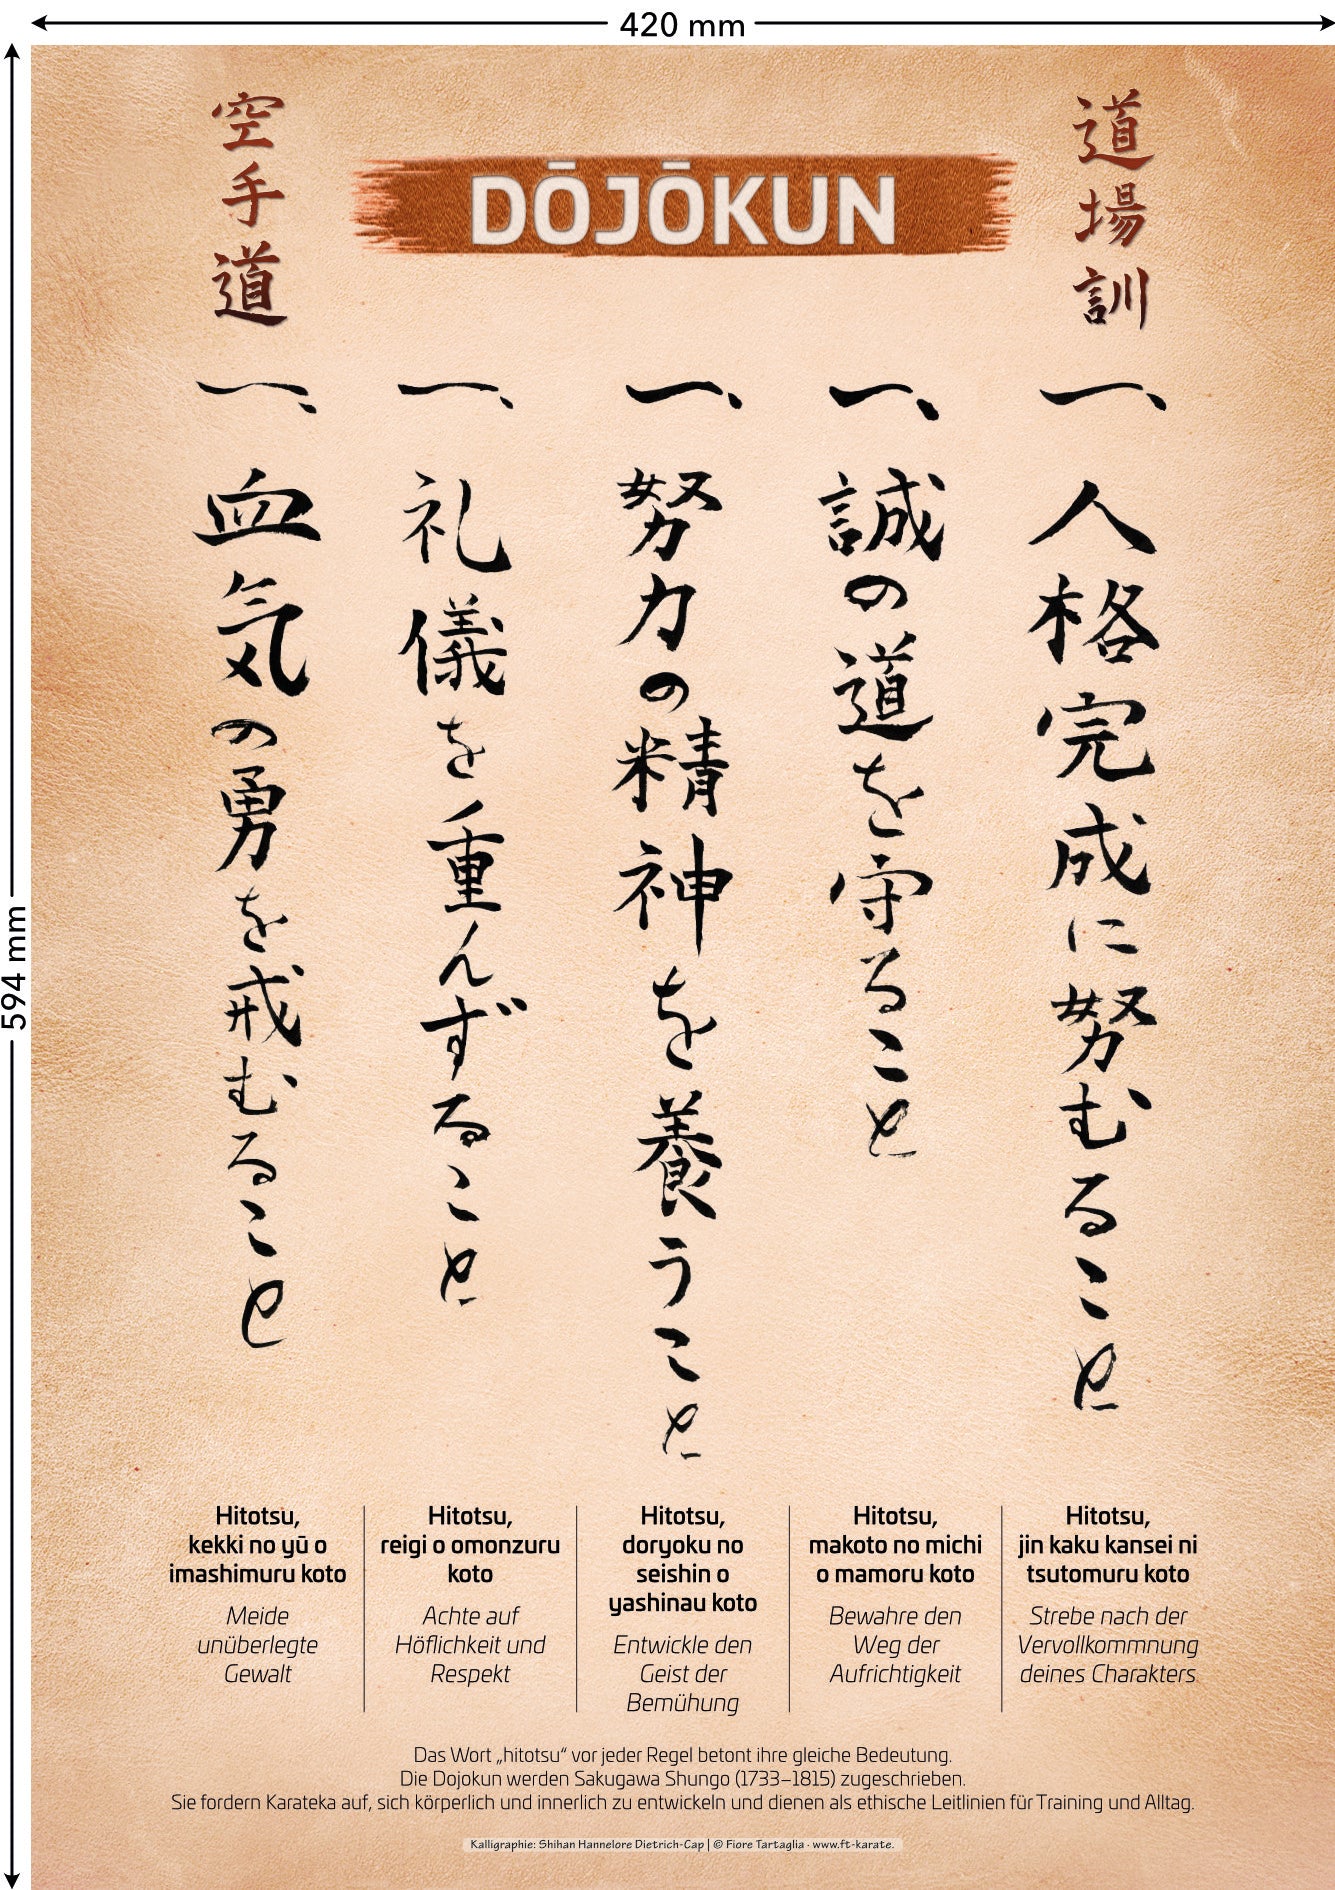 420 mm
594 mm
空手道
DŌJŌKUN
道場訓
一、人格完成に努むること
一、誠の道を守ること
一、努力の精神を養うこと
一、礼儀を重んずること
一、血気の勇を戒むること
Hitotsu,
kekki no yū o
imashimuru koto
Meide
unüberlegte
Gewalt
Hitotsu,
reigi o omonzuru
koto
Achte auf
Höflichkeit und
Respekt
Hitotsu,
doryoku no
seishin o
yashinau koto
Entwickle den
Geist der
Bemühung
Hitotsu,
makoto no michi
o mamoru koto
Bewahre den
Weg der
Aufrichtigkeit
Hitotsu,
jin kaku kansei ni
tsutomuru koto
Strebe nach der
Vervollkommnung
deines Charakters
Das Wort „hitotsu“ vor jeder Regel betont ihre gleiche Bedeutung.
Die Dojokun werden Sakugawa Shungo (1733–1815) zugeschrieben.
Sie fordern Karateka auf, sich körperlich und innerlich zu entwickeln und dienen als ethische Leitlinien für Training und Alltag.
Kalligraphie: Shihan Hannelore Dietrich-Cap | © Fiore Tartaglia · www.ft-karate.